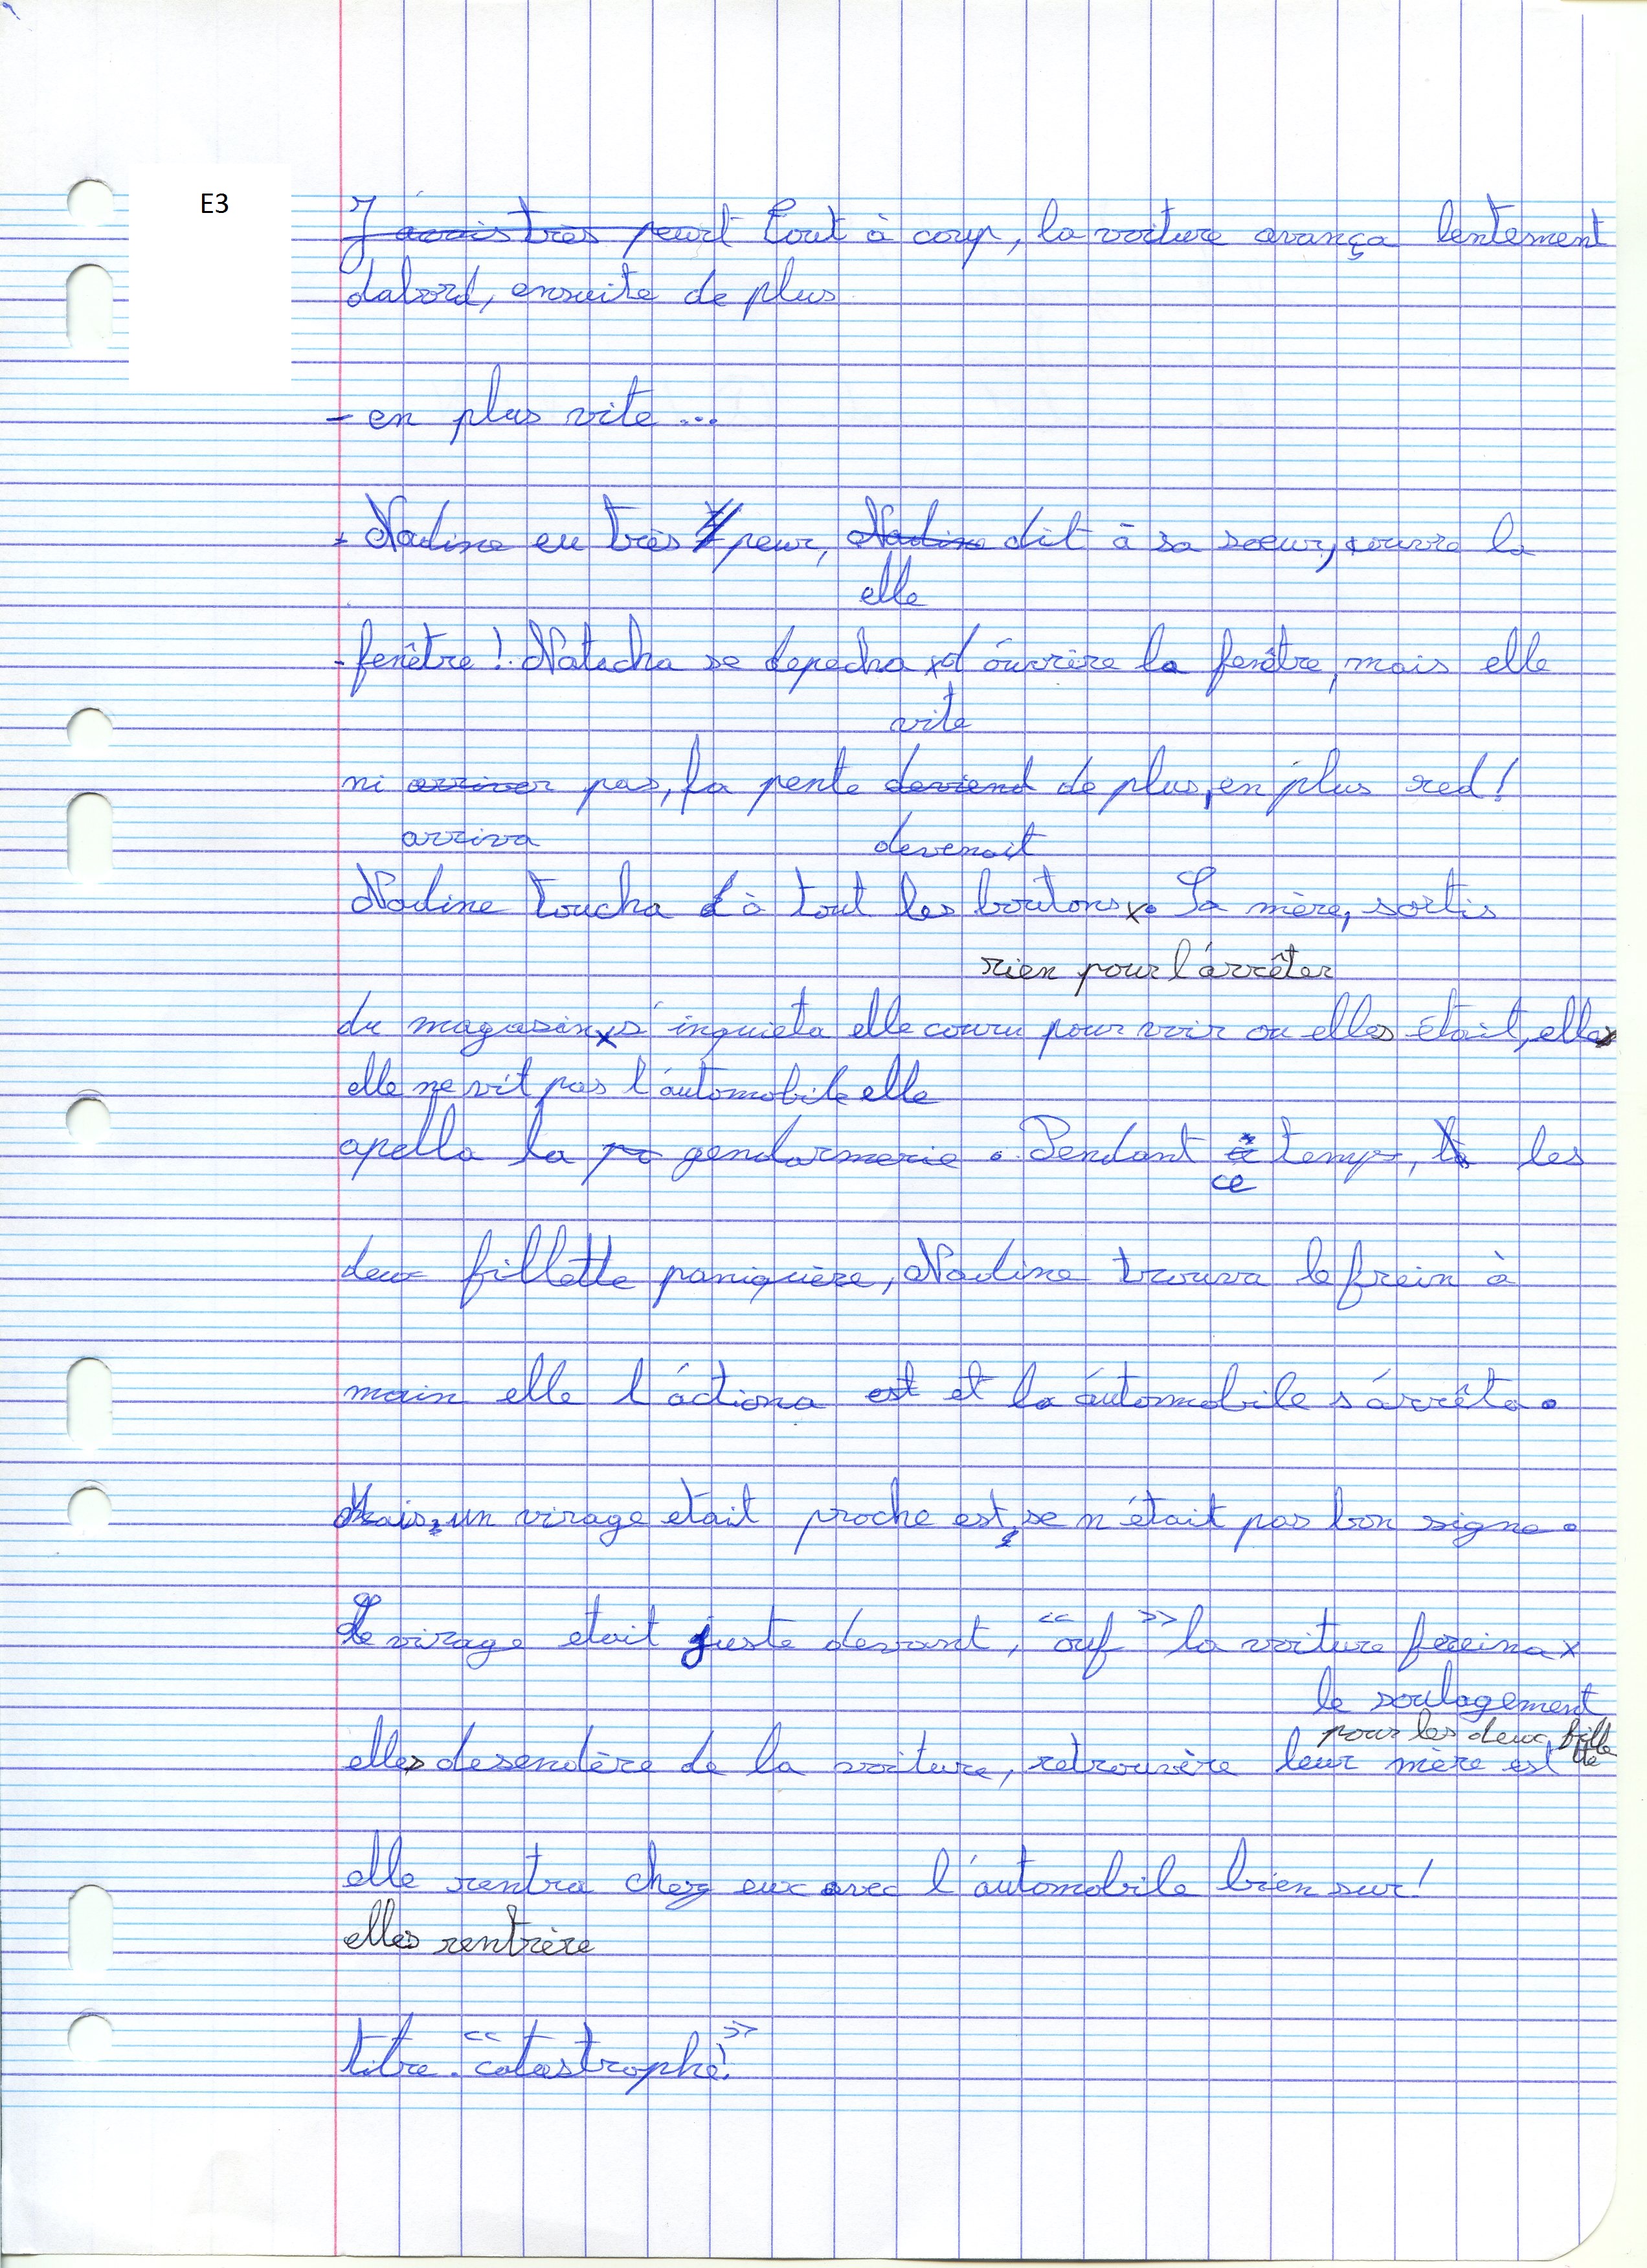 E3
J'avais très peurt Tout à coup, la voiture avança lentement
dabord, ensuite de plus
- en plus vite ...
- Nadine eu très peur, Nadine dit à sa soeur, ouvre la
elle
- fenêtre ! Natacha se depecha x d'ouvrire la fenêtre, mais elle
vite
ni arriver pas, la pente deviend de plus, en plus red !
arriva devenait
Nadine toucha à tout les boutons x. Sa mère, sortis
rien pour l'arrêter
du magasin x s'inquieta elle couru pour voir ou elles était, elle
elle ne vit pas l'automobile elle
apella la gendarmerie . Pendant temps, les
ce
deux fillette paniquère, Nadine trouva le frein à
main elle l'actiona est et la automobile s'arrêta .
Mais, un virage etait proche est, se n'était pas bon signe .
Le virage etait juste devant, << ouf >> la voiture fereina x
le soulagement
pour les deux fille
tte
elles desendère de la voiture, retrouvère leur mère est
elle rentra chez eux avec l'automobile bien sur !
elles rentrère
titre . << catastrophe ! >>